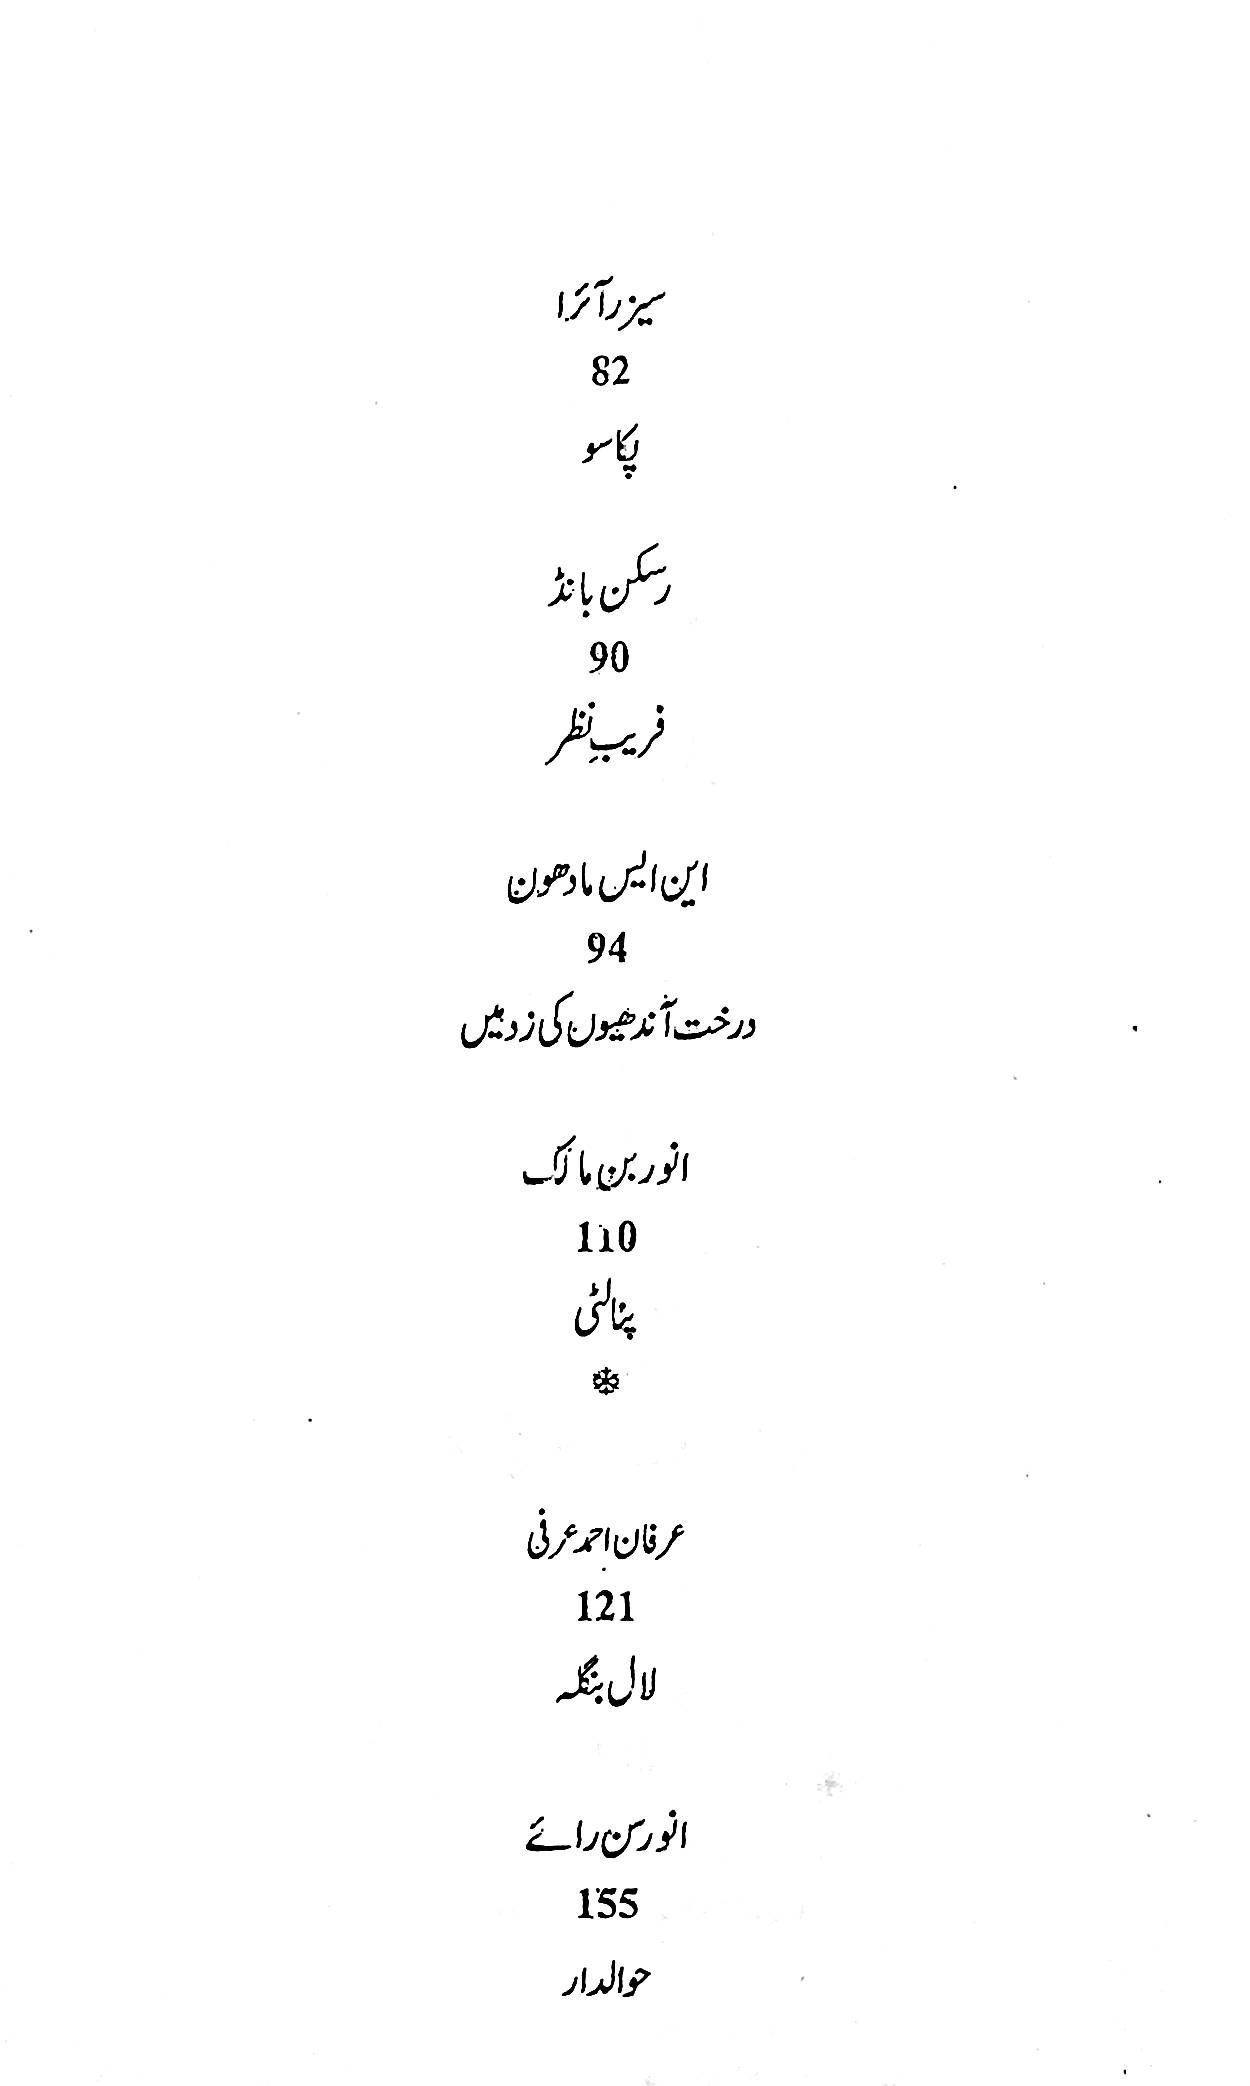 سیزر آئرا
82
پکاسو
رسکن بانڈ
90
فریبِ نظر
این ایس مادھون
94
درخت آندھیوں کی زد میں
انور بن مالک
110
پنالٹی
عرفان احمد عرفی
121
لال بنگلہ
انور سن رائے
155
حوالدار